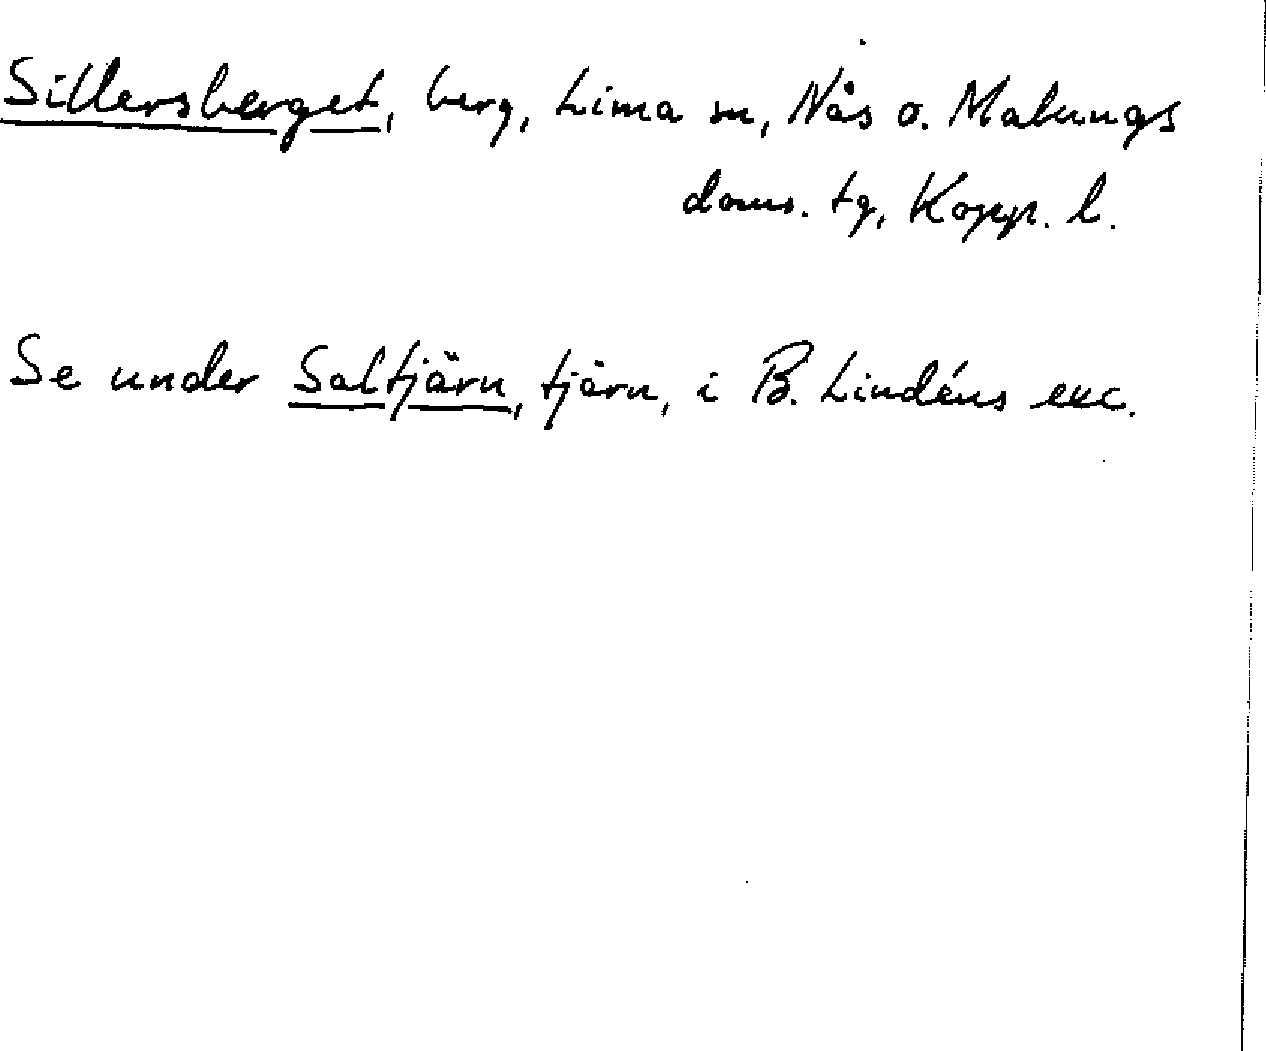 Sillersberget, berg, Lima sn, Nås o. Malungs
doms. tg, Kopp. l.
Se under Saltjärn, tjärn, i B. Lindéns exc.